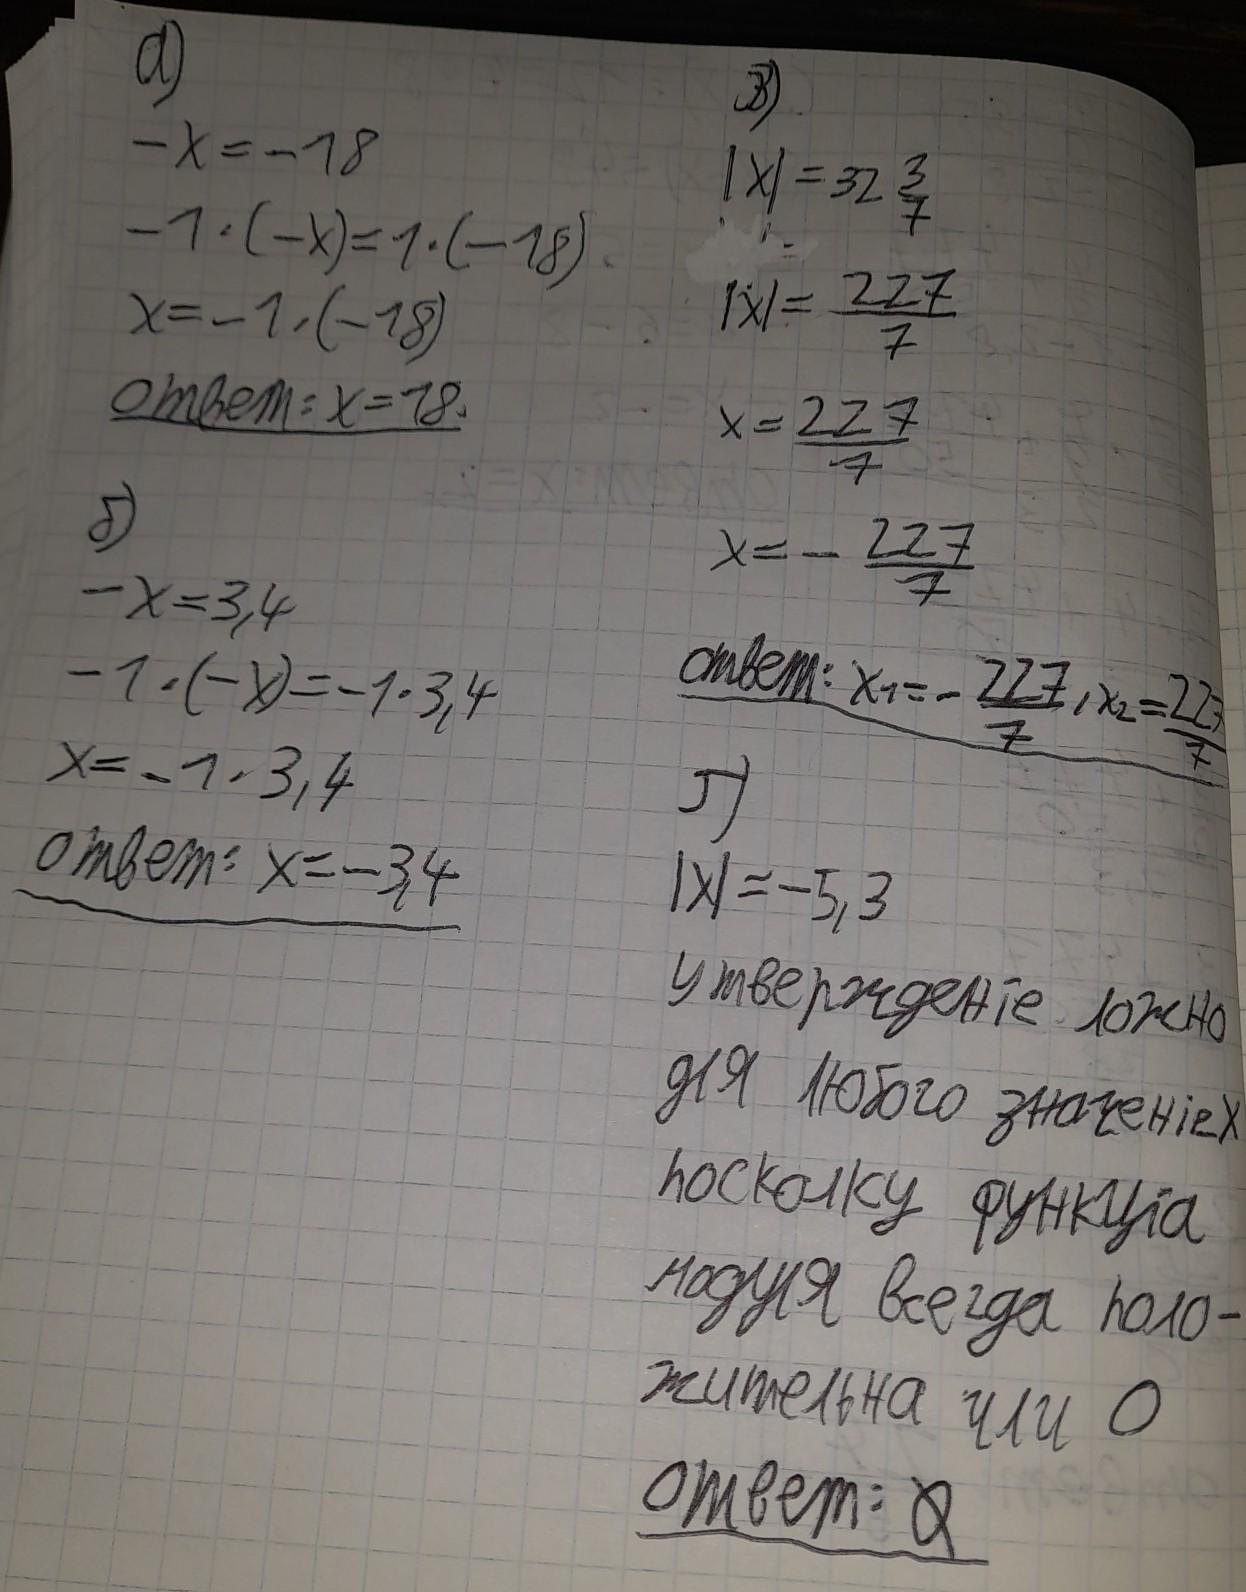 а)
-x=-18
-1·(-x)=1·(-18)
x=-1·(-18)
ответ: x=18.
б)
-x=3,4
-1·(-x)=-1·3,4
x=-1·3,4
ответ: x=-3,4
в)
|x|=32 3/7
|x|=227/7
x=227/7
x=-227/7
ответ: x₁=-227/7, x₂=227/7
г)
|x|=-5,3
утвержденіе ложно
для любого значеніе x
посколку функціа
модуля всегда поло-
жительна или 0
ответ: Ø